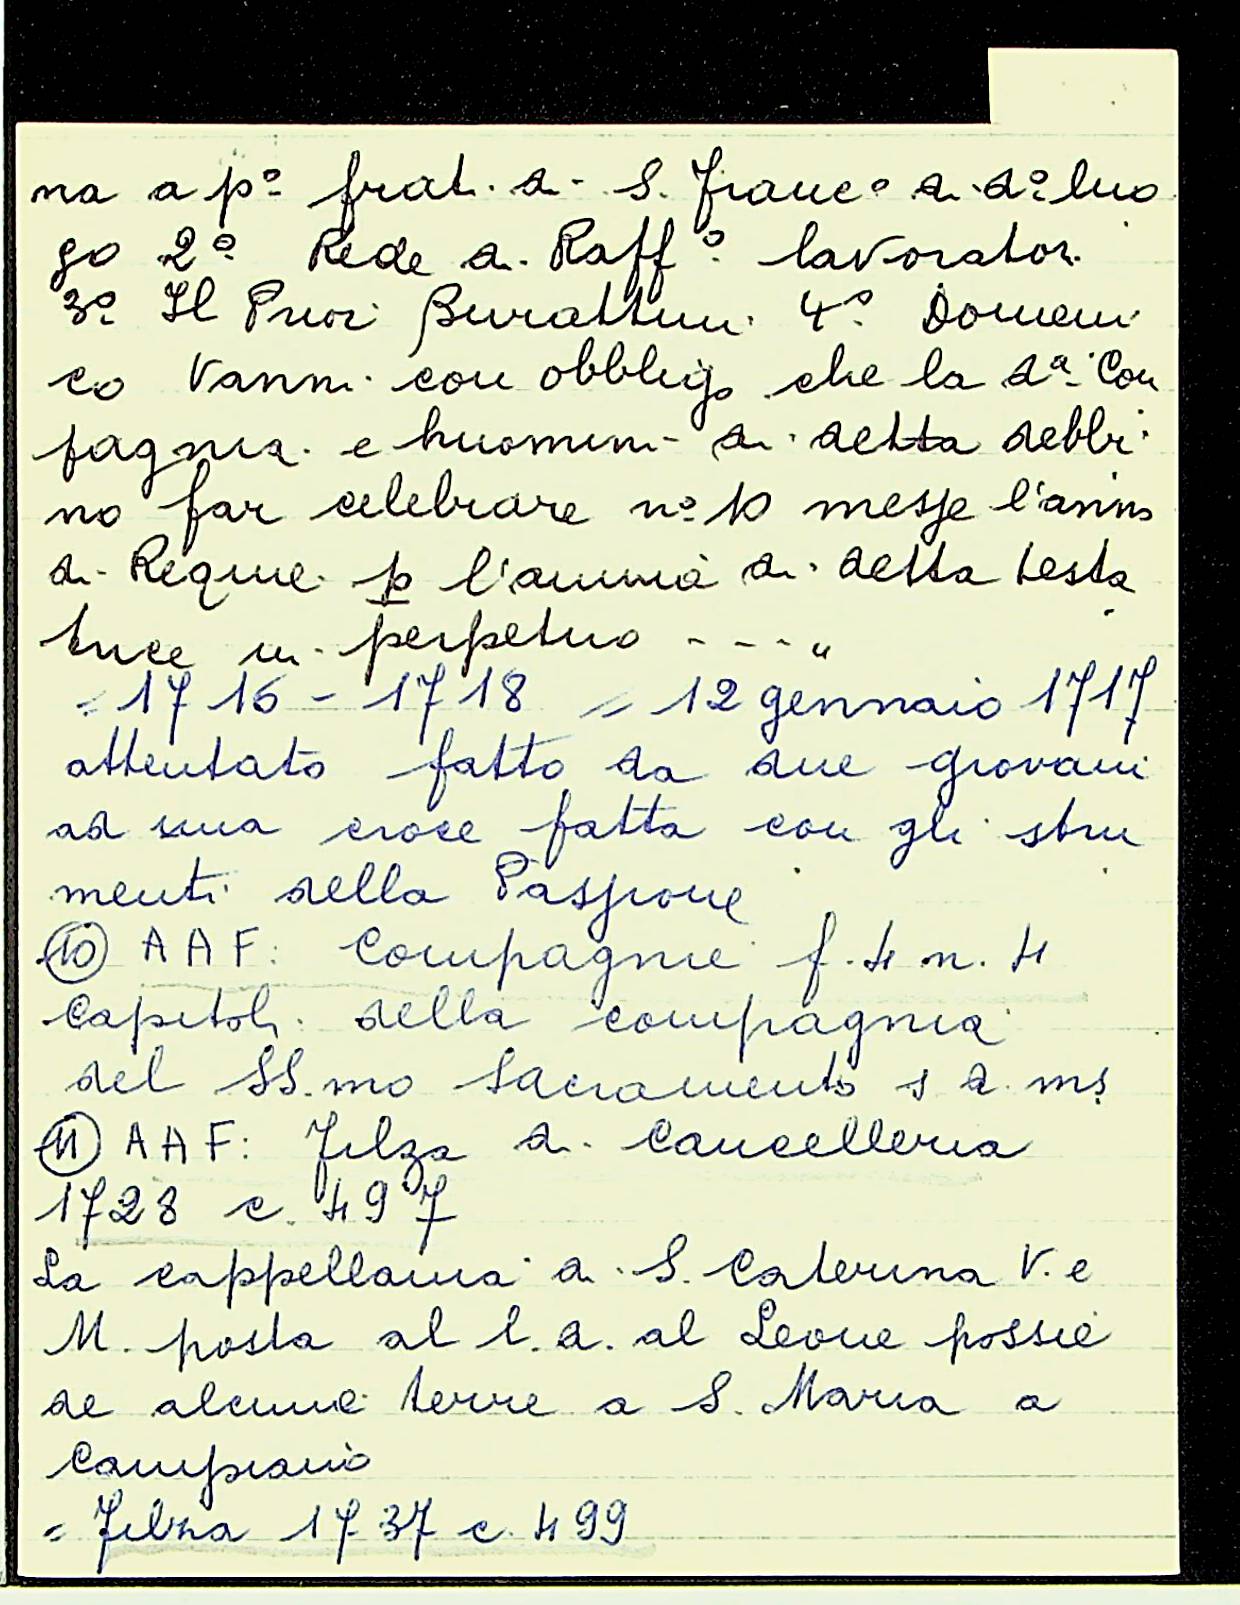 na a p.º frat. di S. Franc.º di d.º luo
go 2.º Rede di Raff.º lavorator.
3.º Il Prior Burattini 4.º Domeni
co Vanni con obbligo che la d.ª Com
pagnia e huomini di detta debbi
no far celebrare n.º 10 messe l'anno
di Requie p l'anima di detta testa
trice in perpetuo - - - - "
= 1716 - 1718 = 12 gennaio 1717
attentato fatto da due giovani
ad una croce fatta con gli stru
menti della Passione
(10) AAF: Compagnie f. 4 n. 4
Capitoli della compagnia
del SS.mo Sacramento s d. ms
(11) AAF: Filza di Cancelleria
1728 c. 497
La cappellania di S. Caterina V. e
M. posta al l. d. al Leone possie
de alcune terre a S. Maria a
Campiano
= Filza 1737 c. 499